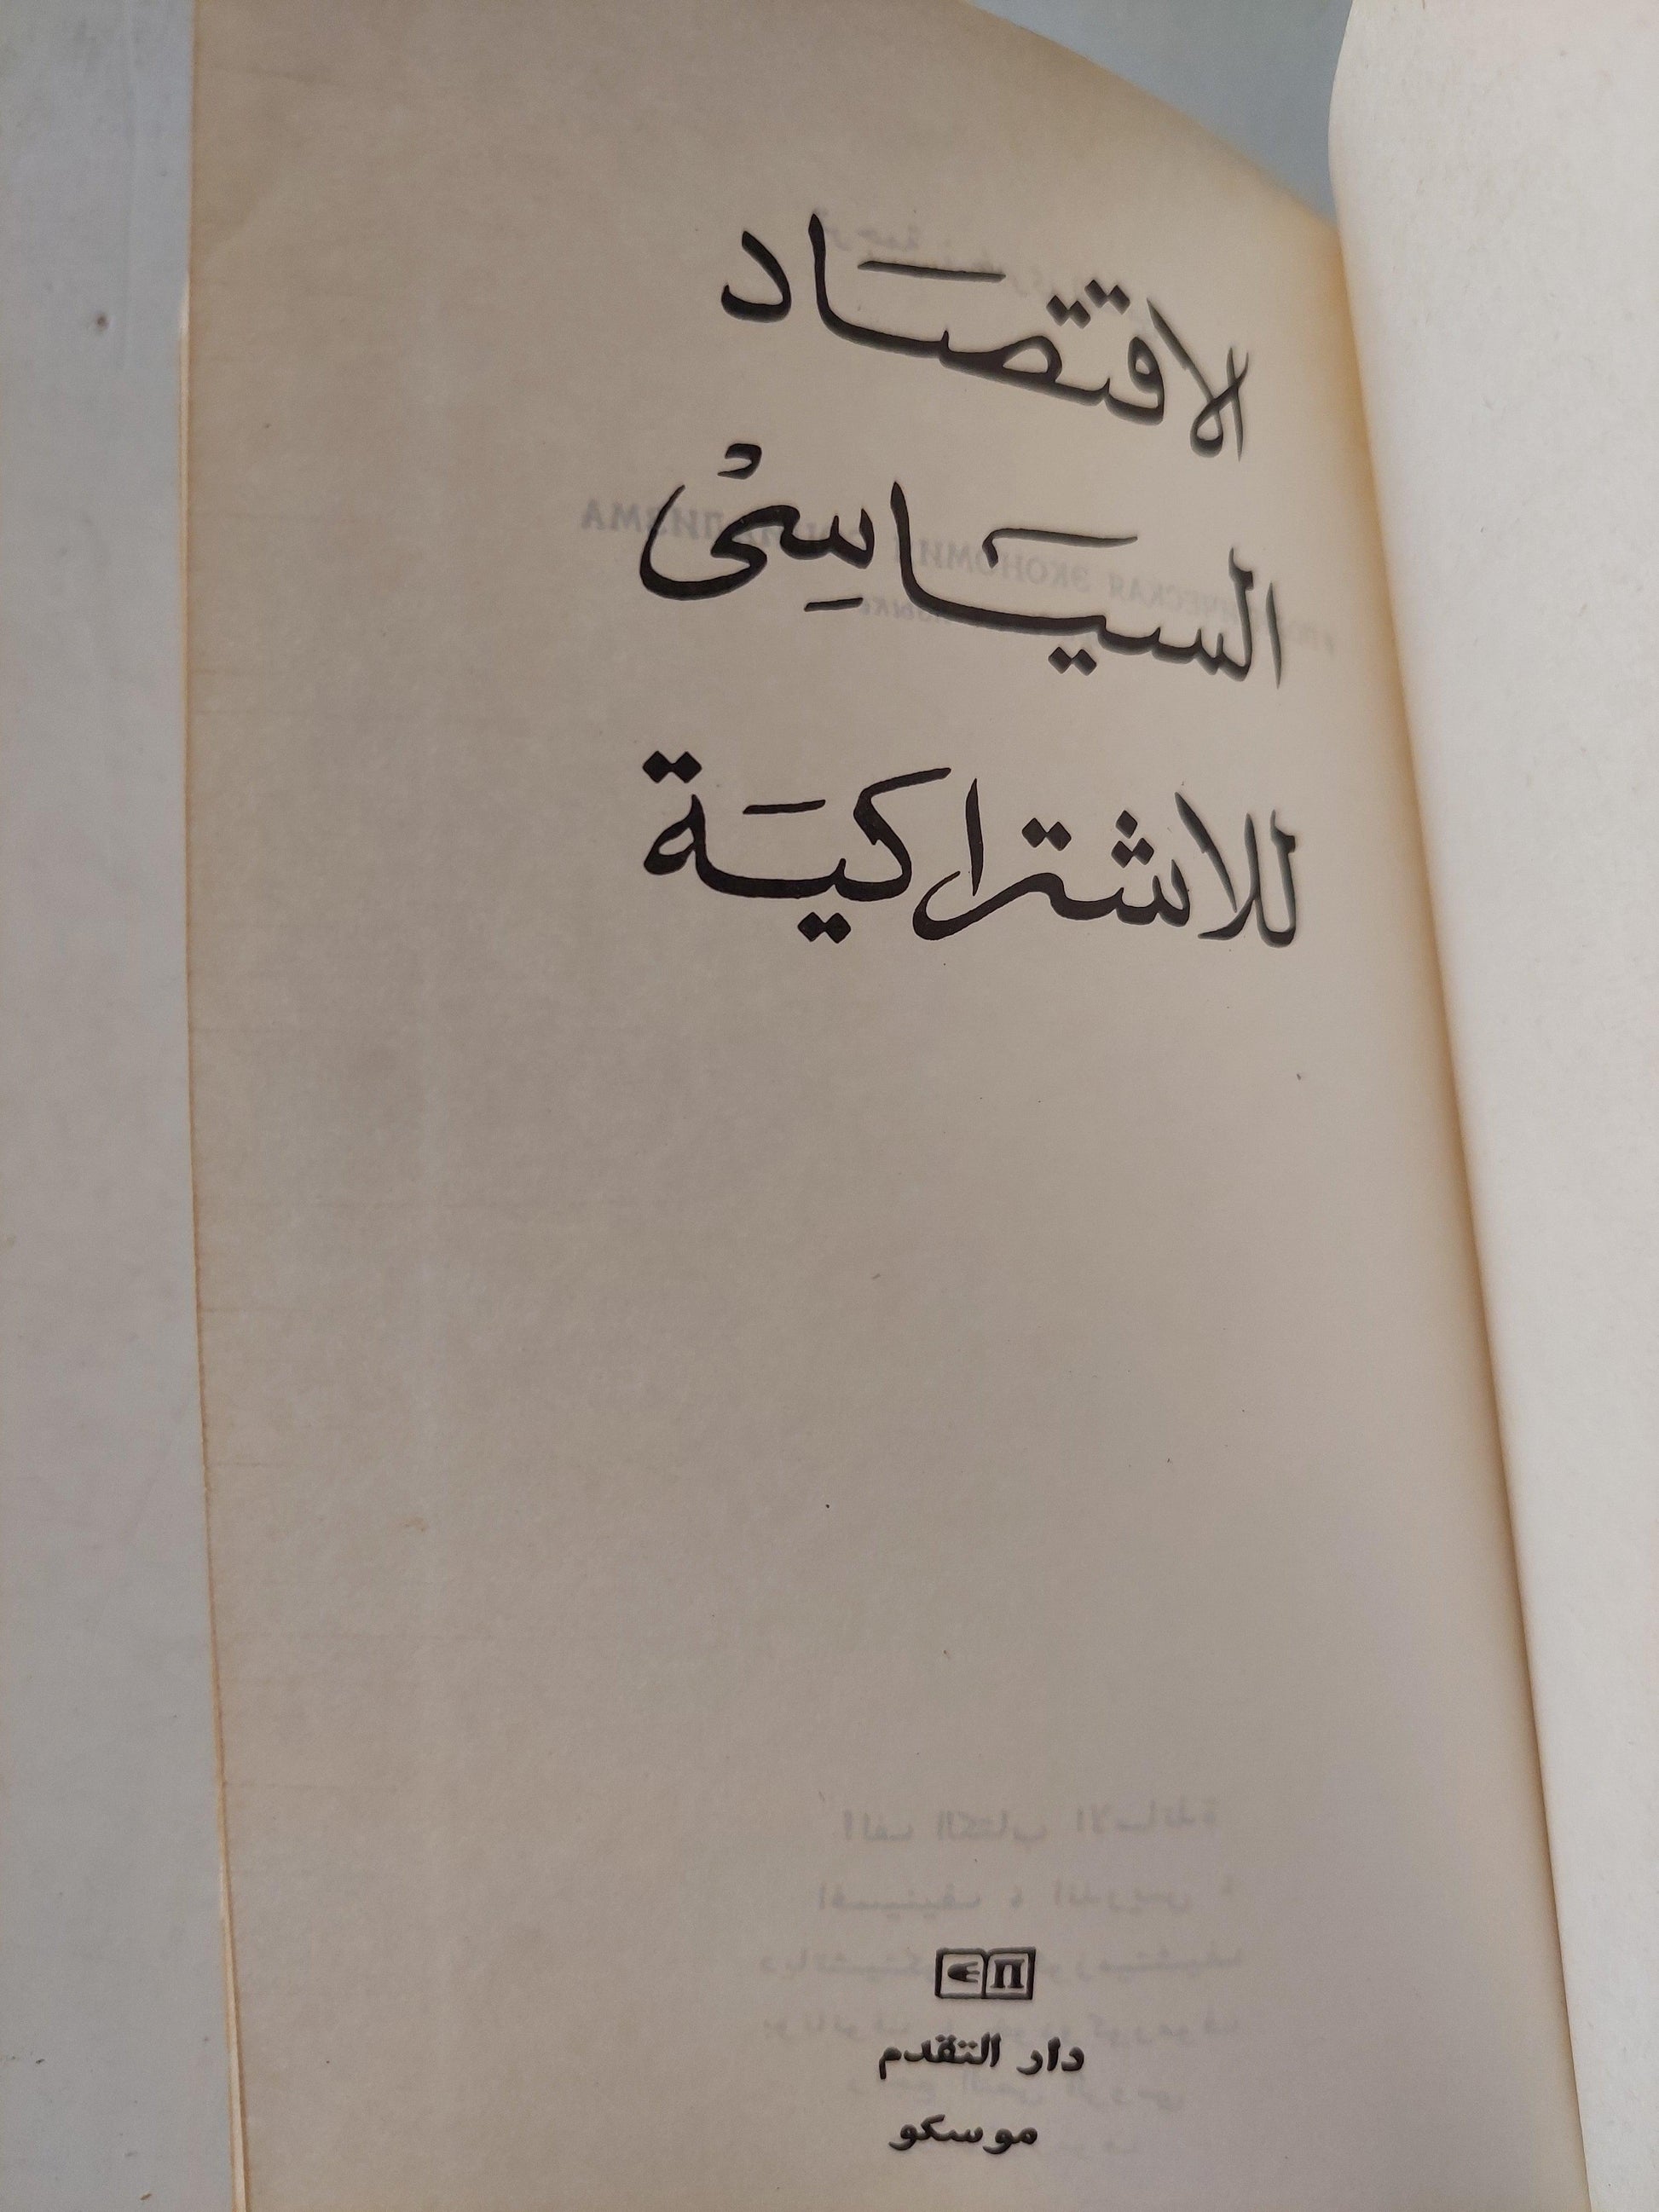 الاقتصاد
السياسي
للاشتراكية
دار التقدم
موسكو